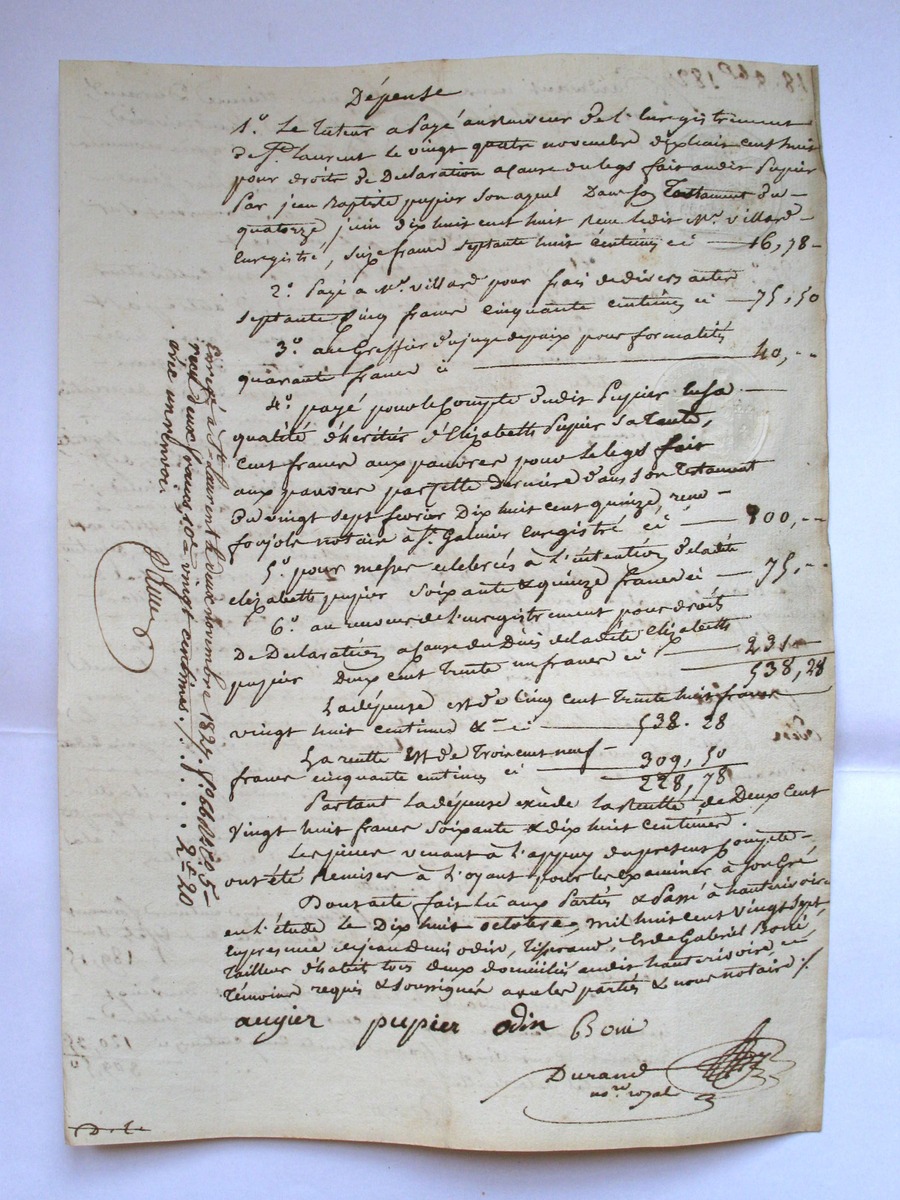 Dépense
1.º Le tuteur a payé au Receveur de l'Enregistrement
de St. Laurent le vingt quatre novembre dix huit cent huit
pour droits de Déclaration a cause du legs fait audit Pupier
Par jean Baptiste pupier son ayeul Dans son Testament du
quatorze juin dix huit cent huit Reçu ledit Mr. Villard
Enregistré, seize francs septante huit centimes ci 16,78
2.º Payé a Mr. Villard pour frais de divers actes
septante cinq francs cinquante centimes ci 75,50
3.º au Greffier du juge de paix pour formalités
quarante francs ci 40,
4.º payé pour le compte dudit Pupier en sa
qualité d'héritier d'Elizabeth Pupier sa tante,
Cent francs aux pauvres pour le legs fait
aux pauvres par cette dernière dans son Testament
du vingt sept février dix huit cent quinze, reçu
notaire a St. Galmier Enregistré ci 100,
5.º pour messes celebrées à l'intention de ladite
elizabeth pupier soixante & quinze francs ci 75,
6.º au Receveur de l'enregistrement pour droits
De Declaration a cause du Décès de ladite Elizabeth
pupier Deux cent trente un francs ci 231
538,28
La dépense est de Cinq cent Trente huit francs
vingt huit centimes ci 538.28
La recette Est de Trois cent neuf
francs cinquante centimes ci 309,50
228,78
Partant la dépense excède la Recette de Deux cent
vingt huit francs soixante & dix huit centimes.
Les pièces venant à l'appuy du present Compte
ont été Remises à l'oyant pour les examiner à son Gré
Dont acte fait lu aux Parties & Passé à hauterivoire
en l'étude le Dix huit octobre mil huit cent vingt sept,
En presence de jean Denis odin, Tisserand, & de Gabriel Boné,
Tailleur d'habit tous deux domiciliés audit hauterivoire,
Témoins requis & soussignés avec les parties & nous notaire ./.
augier pupier odin Boné
Durand
nore. royal
Enregé. à St. Laurent le
reçu deux francs 10.e vingt centimes
2 = 20